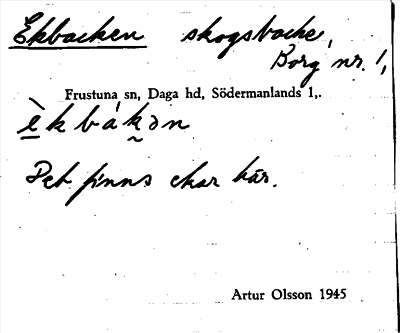 Ekbacken skogsbacke,
Borg nr. 1,
Frustuna sn, Daga hd, Södermanlands l,.
è̱kbák̰ən
Det finns ekar här.
Artur Olsson 1945